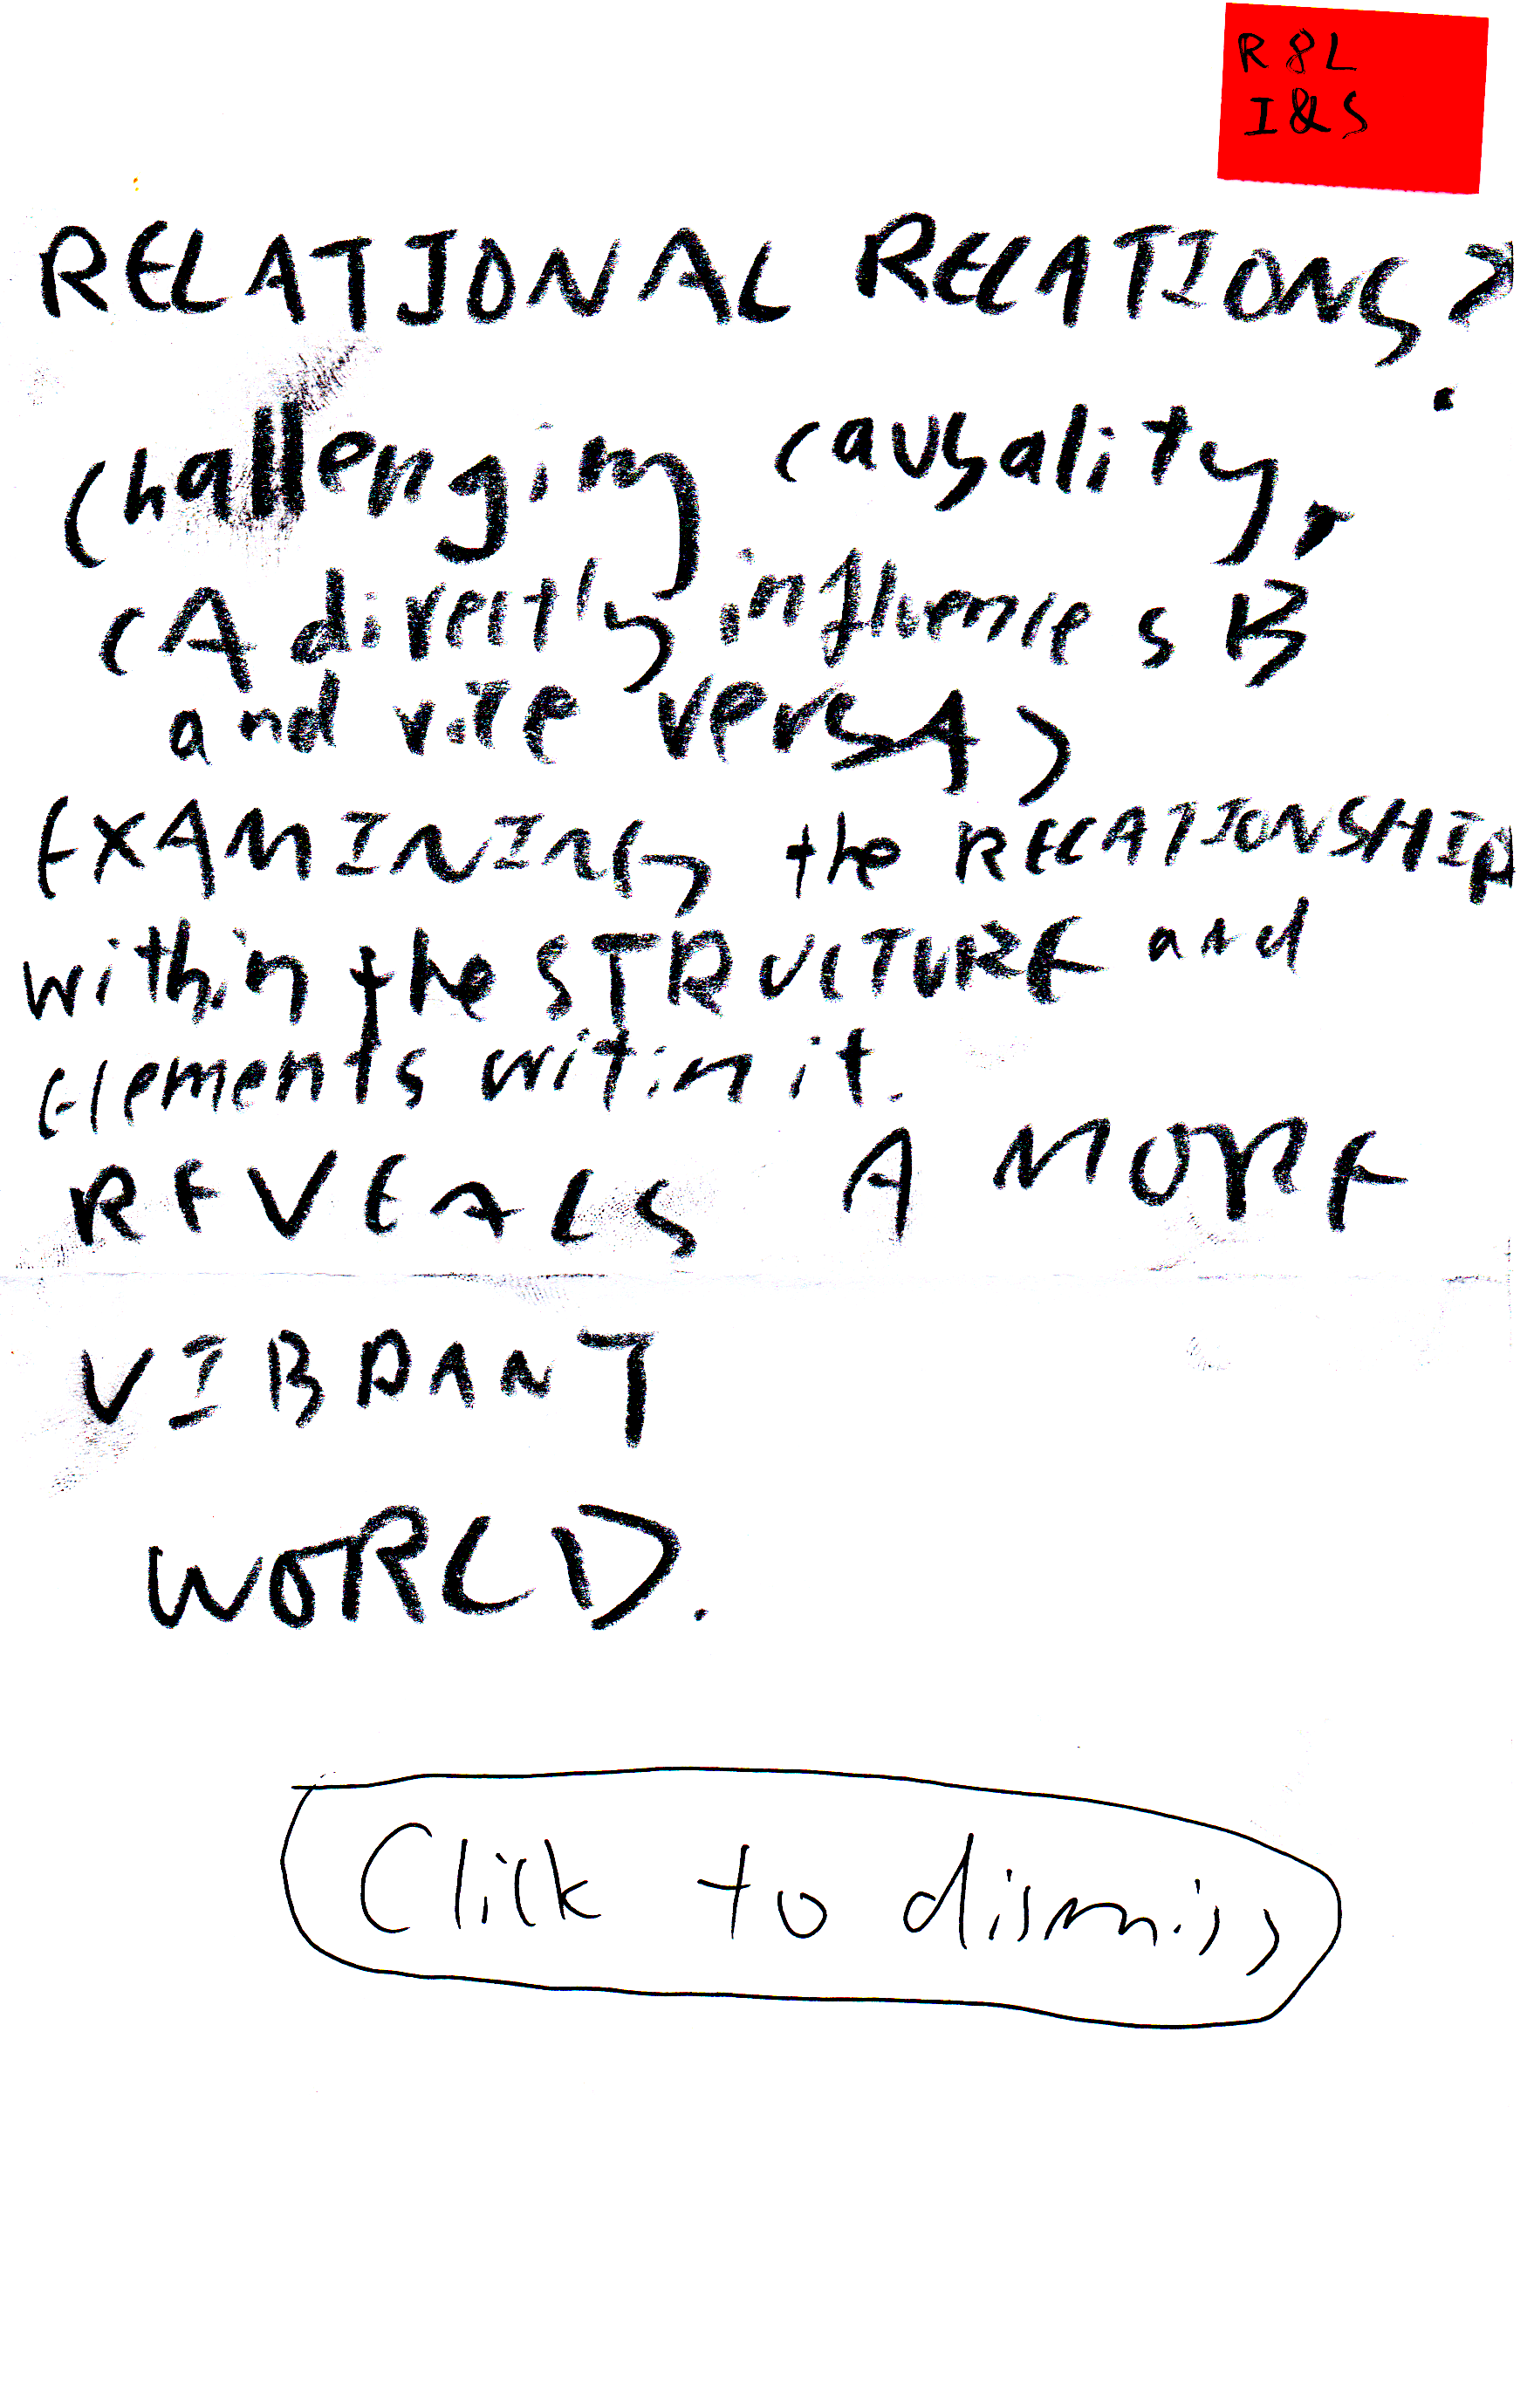 R&L
I&S
RELATIONAL RELATIONS?
Challenging causality,
(A directly influences B
and vice versA)
EXAMINING the RELATIONSHIP
within the STRUCTURE and
Elements witin it.
REVEALS A MORE
VIBRANT
WORLD.
Click to dismiss